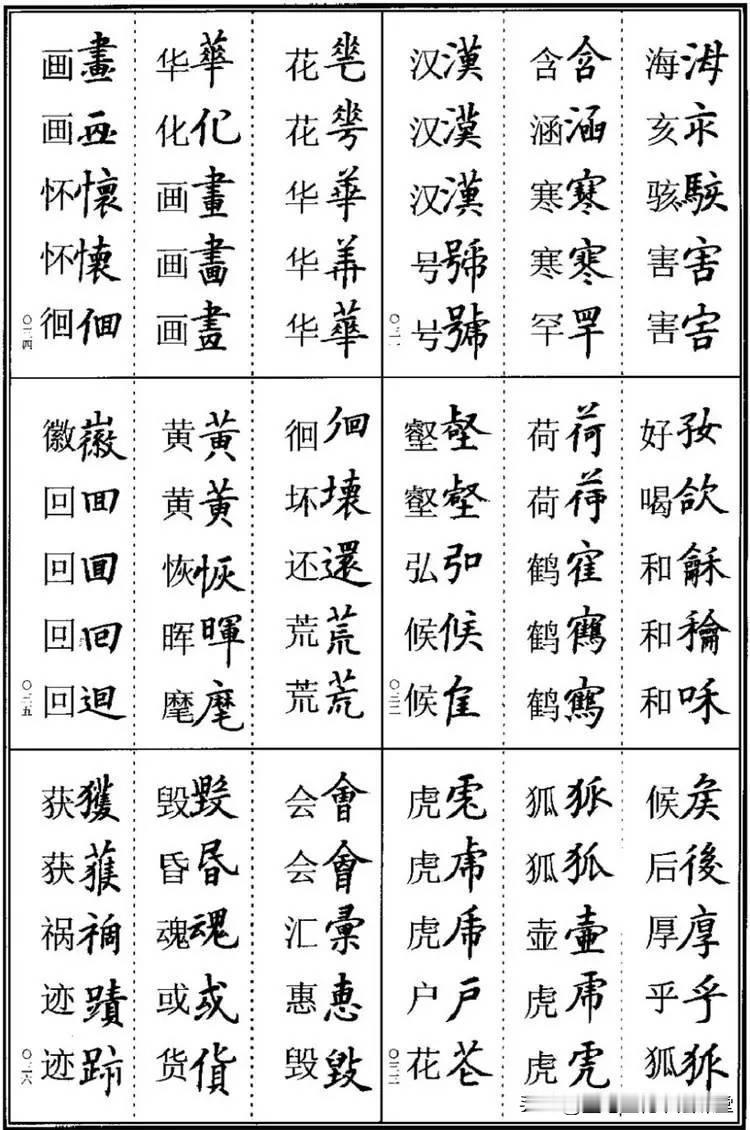 海海
亥亥
骇駭
害害
害害
含含
涵涵
寒寒
寒寒
罕罕
汉漢
汉漢
汉漢
号號
号號
〇三一
好好
喝欱
和龢
和龢
和咊
荷荷
荷荷
鹤隺
鹤鶴
鹤鶴
壑壑
壑壑
弘弘
候候
候隹
〇三二
候矦
后後
厚厚
乎乎
狐狐
狐狐
狐狐
壶壷
虎虎
虎虎
虎虎
虎虎
虎虎
户戶
花花
〇三三
花花
花花
华華
华華
华華
华華
化化
画畫
画畫
画畫
画畫
画画
怀懷
怀懐
徊佪
〇三四
徊徊
坏壞
还還
荒荒
荒荒
黄黃
黄黄
恢恢
晖暉
麾麾
徽徽
回囬
回囬
回囘
回迴
〇三五
会會
会會
汇彙
惠恵
毁毁
毁毀
昏昬
魂魂
或或
货貨
获獲
获蒦
祸禍
迹蹟
迹跡
〇三六